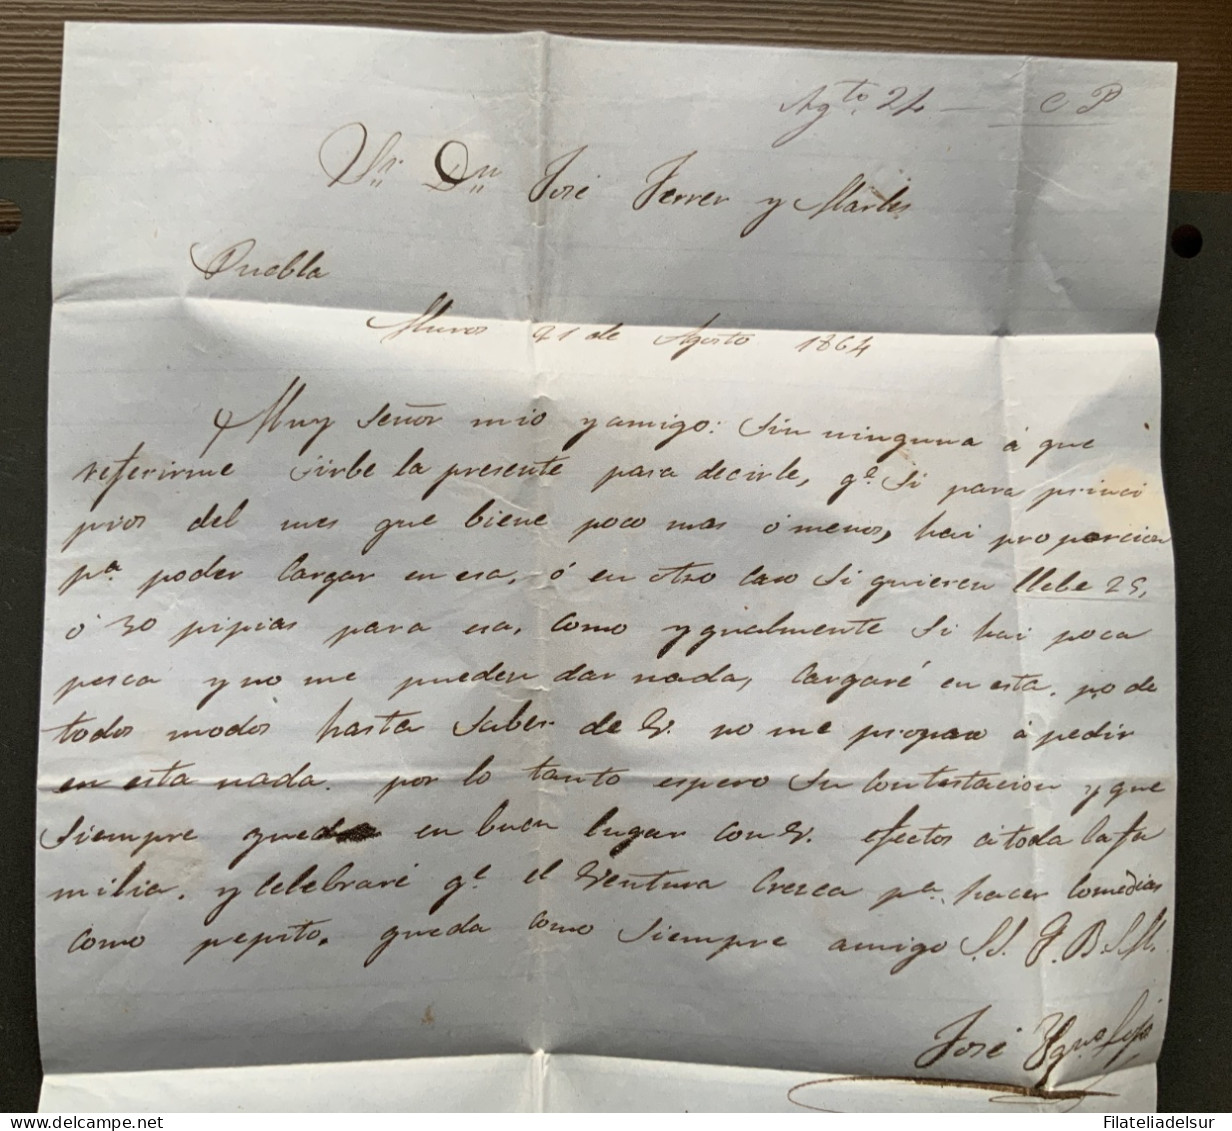 Agto. 24 — C P
Sr. Dn. José Ferrer y Martes
Puebla
Muros 21 de Agosto 1864
Muy señor mio y amigo: Sin ninguna á que
referirme sirbe la presente para decirle, qe. si para princi
pios del mes que biene poco mas ó menos, hai proporcion
pa. poder cargar en esa, ó en otro caso si quieren llebe 25,
ó 30 pipias para esa, como ygualmente si hai poca
pesca y no me pueden dar nada, cargaré en esta. po de
todos modos hasta saber de V. no me propaso á pedir
en esta nada. por lo tanto espero su contestacion y que
siempre quede en buen lugar con V. efectos á toda la fa
milia. y celebraré qe. el Ventura cresca pa. hacer comedias
como pepito. queda como siempre amigo S.S. Q.B.S.M.
José Ygno
Filateliadelsur